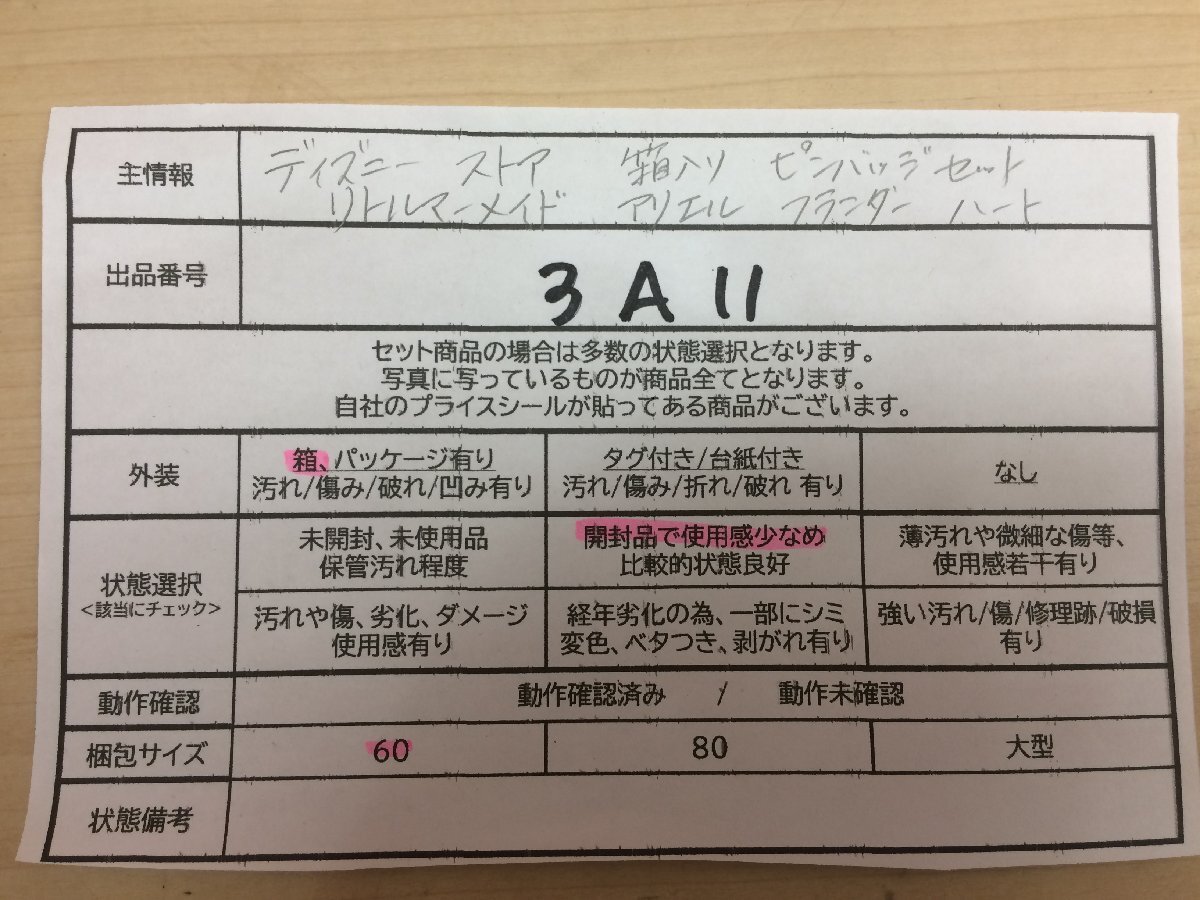 主情報
ディズニー ストア 箱入り ピンバッジセット
リトルマーメイド アリエル フランダー ハート
出品番号
3A11
セット商品の場合は多数の状態選択となります。
写真に写っているものが商品全てとなります。
自社のプライスシールが貼ってある商品がございます。
外装
箱、パッケージ有り
汚れ/傷み/破れ/凹み有り
タグ付き/台紙付き
汚れ/傷み/折れ/破れ 有り
なし
状態選択
<該当にチェック>
未開封、未使用品
保管汚れ程度
開封品で使用感少なめ
比較的状態良好
薄汚れや微細な傷等、
使用感若干有り
汚れや傷、劣化、ダメージ
使用感有り
経年劣化の為、一部にシミ
変色、ベタつき、剥がれ有り
強い汚れ/傷/修理跡/破損
有り
動作確認
動作確認済み / 動作未確認
梱包サイズ
60
80
大型
状態備考